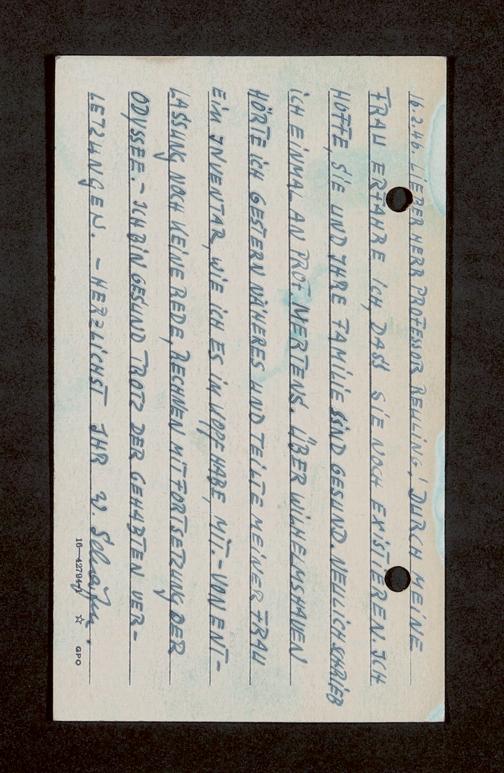 16.2.46. LIEBER HERR PROFESSOR REULING! DURCH MEINE
FRAU ERFAHRE ICH, DASS SIE NOCH EXISTIEREN. ICH
HOFFE SIE UND IHRE FAMILIE SIND GESUND. NEULICH SCHRIEB
ICH EINMAL AN PROF MERTENS. ÜBER WILHELMSHAVEN
HÖRTE ICH GESTERN NÄHERES UND TEILTE MEINER FRAU
EIN INVENTAR, WIE ICH ES IM KOPPE HABE, MIT. - VON ENT-
LASSUNG NOCH KEINE REDE, RECHNEN MIT FORTSETZUNG DER
ODYSSEE. - ICH BIN GESUND TROTZ DER GEHABTEN VER-
LETZUNGEN. - HERZLICHST IHR W.
16—42794-1 ☆ GPO